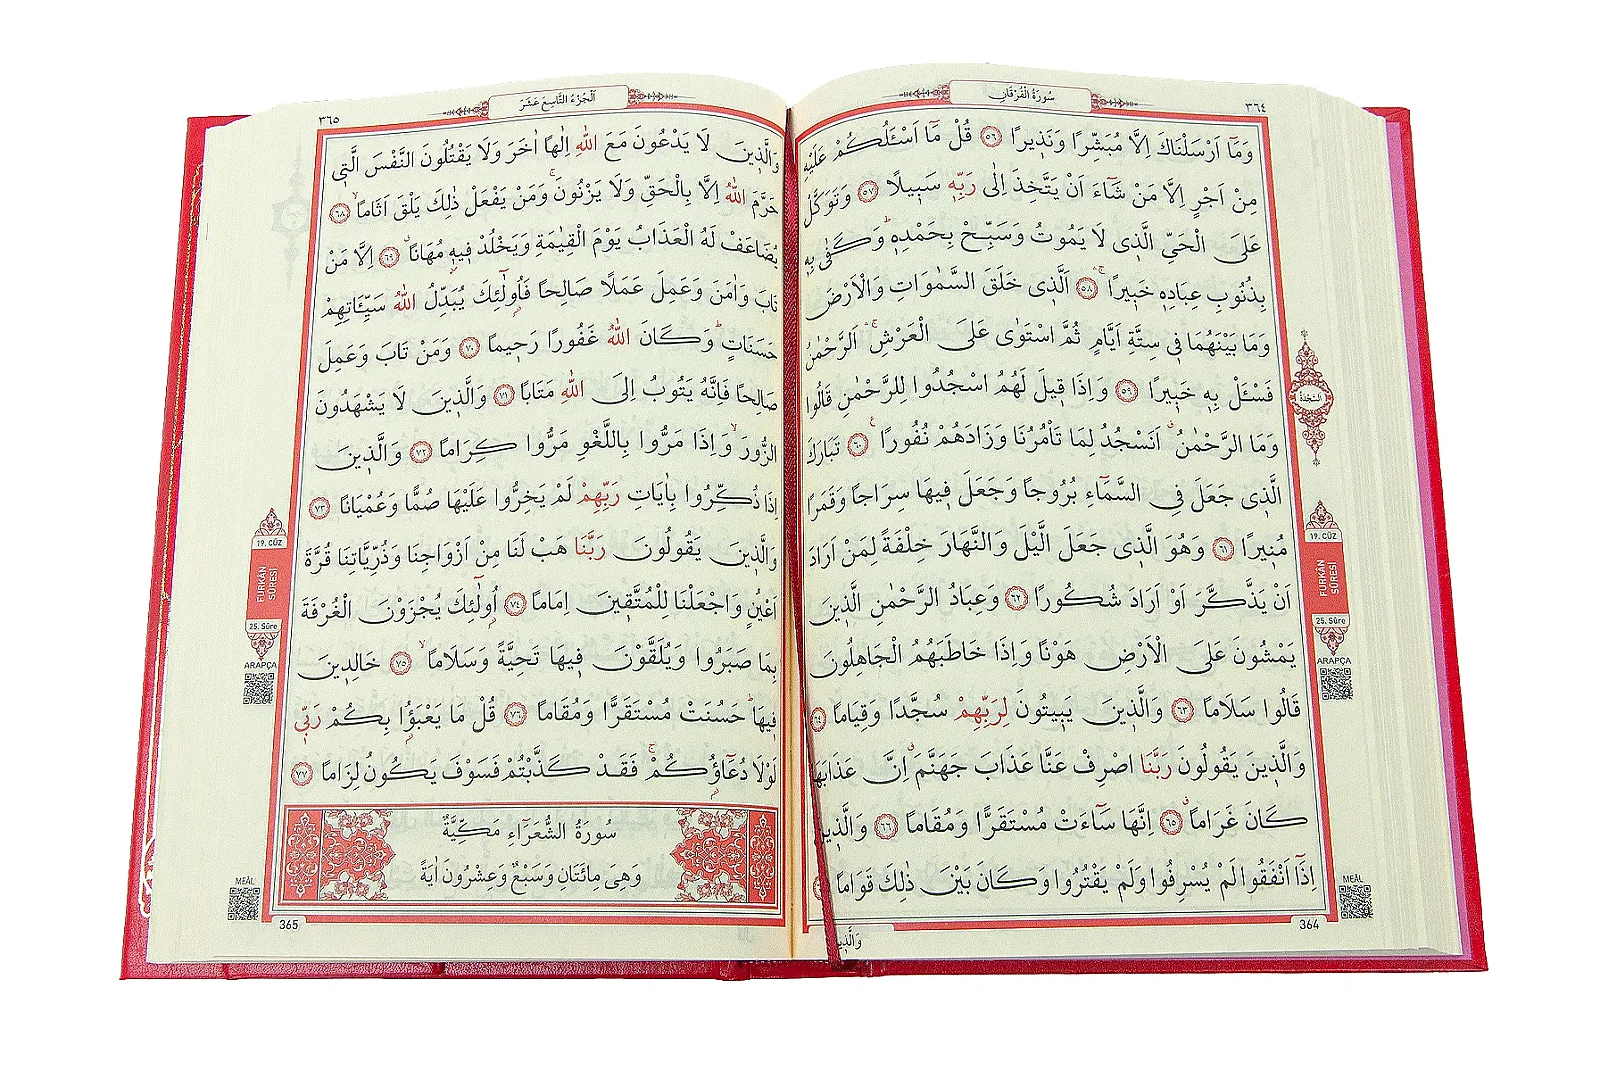 سُورَةُ الْفُرْقَانِ
٣٦٤
وَمَٓا اَرْسَلْنَاكَ اِلَّا مُبَشِّرًا وَنَذ۪يرًا ﴿٥٦﴾ قُلْ مَٓا اَسْـَٔلُكُمْ عَلَيْهِ
مِنْ اَجْرٍ اِلَّا مَنْ شَٓاءَ اَنْ يَتَّخِذَ اِلٰى رَبِّه۪ سَب۪يلًا ﴿٥٧﴾ وَتَوَكَّلْ
عَلَى الْحَيِّ الَّذ۪ي لَا يَمُوتُ وَسَبِّحْ بِحَمْدِه۪ۜ وَكَفٰى بِه۪
بِذُنُوبِ عِبَادِه۪ خَب۪يرًاۚۛ ﴿٥٨﴾ اَلَّذ۪ي خَلَقَ السَّمٰوَاتِ وَالْاَرْضَ
وَمَا بَيْنَهُمَا ف۪ي سِتَّةِ اَيَّامٍ ثُمَّ اسْتَوٰى عَلَى الْعَرْشِۚۛ اَلرَّحْمٰنُ
فَسْـَٔلْ بِه۪ خَب۪يرًا ﴿٥٩﴾ وَاِذَا ق۪يلَ لَهُمُ اسْجُدُوا لِلرَّحْمٰنِ قَالُوا
وَمَا الرَّحْمٰنُۗ اَنَسْجُدُ لِمَا تَأْمُرُنَا وَزَادَهُمْ نُفُورًا۟ ﴿٦٠﴾ تَبَارَكَ
الَّذ۪ي جَعَلَ فِي السَّمَٓاءِ بُرُوجًا وَجَعَلَ ف۪يهَا سِرَاجًا وَقَمَرًا
مُن۪يرًا ﴿٦١﴾ وَهُوَ الَّذ۪ي جَعَلَ الَّيْلَ وَالنَّهَارَ خِلْفَةً لِمَنْ اَرَادَ
اَنْ يَذَّكَّرَ اَوْ اَرَادَ شُكُورًا ﴿٦٢﴾ وَعِبَادُ الرَّحْمٰنِ الَّذ۪ينَ
يَمْشُونَ عَلَى الْاَرْضِ هَوْنًا وَاِذَا خَاطَبَهُمُ الْجَاهِلُونَ
قَالُوا سَلَامًا ﴿٦٣﴾ وَالَّذ۪ينَ يَب۪يتُونَ لِرَبِّهِمْ سُجَّدًا وَقِيَامًا ﴿٦٤﴾
وَالَّذ۪ينَ يَقُولُونَ رَبَّنَا اصْرِفْ عَنَّا عَذَابَ جَهَنَّمَۗ اِنَّ عَذَابَهَا
كَانَ غَرَامًاۗ ﴿٦٥﴾ اِنَّهَا سَٓاءَتْ مُسْتَقَرًّا وَمُقَامًا ﴿٦٦﴾ وَالَّذ۪ينَ
اِذَٓا اَنْفَقُوا لَمْ يُسْرِفُوا وَلَمْ يَقْتُرُوا وَكَانَ بَيْنَ ذٰلِكَ قَوَامًا
وَالَّذ۪ينَ
364
السَّجْدَة
19. CÜZ
FURKÂN
SÛRESİ
25. Sûre
ARAPÇA
MEÂL
اَلْجُزْءُ التَّاسِعَ عَشَرَ
٣٦٥
وَالَّذ۪ينَ لَا يَدْعُونَ مَعَ اللّٰهِ اِلٰهًا اٰخَرَ وَلَا يَقْتُلُونَ النَّفْسَ الَّت۪ي
حَرَّمَ اللّٰهُ اِلَّا بِالْحَقِّ وَلَا يَزْنُونَۚ وَمَنْ يَفْعَلْ ذٰلِكَ يَلْقَ اَثَامًاۙ ﴿٦٨﴾
يُضَاعَفْ لَهُ الْعَذَابُ يَوْمَ الْقِيٰمَةِ وَيَخْلُدْ ف۪يه۪ مُهَانًاۗ ﴿٦٩﴾ اِلَّا مَنْ
تَابَ وَاٰمَنَ وَعَمِلَ عَمَلًا صَالِحًا فَاُو۬لٰٓئِكَ يُبَدِّلُ اللّٰهُ سَيِّـَٔاتِهِمْ
حَسَنَاتٍۜ وَكَانَ اللّٰهُ غَفُورًا رَح۪يمًا ﴿٧٠﴾ وَمَنْ تَابَ وَعَمِلَ
صَالِحًا فَاِنَّهُ يَتُوبُ اِلَى اللّٰهِ مَتَابًا ﴿٧١﴾ وَالَّذ۪ينَ لَا يَشْهَدُونَ
الزُّورَۙ وَاِذَا مَرُّوا بِاللَّغْوِ مَرُّوا كِرَامًا ﴿٧٢﴾ وَالَّذ۪ينَ
اِذَا ذُكِّرُوا بِاٰيَاتِ رَبِّهِمْ لَمْ يَخِرُّوا عَلَيْهَا صُمًّا وَعُمْيَانًا ﴿٧٣﴾
وَالَّذ۪ينَ يَقُولُونَ رَبَّنَا هَبْ لَنَا مِنْ اَزْوَاجِنَا وَذُرِّيَّاتِنَا قُرَّةَ
اَعْيُنٍ وَاجْعَلْنَا لِلْمُتَّق۪ينَ اِمَامًا ﴿٧٤﴾ اُو۬لٰٓئِكَ يُجْزَوْنَ الْغُرْفَةَ
بِمَا صَبَرُوا وَيُلَقَّوْنَ ف۪يهَا تَحِيَّةً وَسَلَامًاۙ ﴿٧٥﴾ خَالِد۪ينَ
ف۪يهَاۜ حَسُنَتْ مُسْتَقَرًّا وَمُقَامًا ﴿٧٦﴾ قُلْ مَا يَعْبَؤُ۬ا بِكُمْ رَبّ۪ي
لَوْلَا دُعَٓاؤُ۬كُمْۚ فَقَدْ كَذَّبْتُمْ فَسَوْفَ يَكُونُ لِزَامًا ﴿٧٧﴾
سُورَةُ الشُّعَرَٓاءِ مَكِّيَّةٌ
وَهِيَ مِائَتَانِ وَسَبْعٌ وَعِشْرُونَ اٰيَةً
365
19. CÜZ
FURKÂN
SÛRESİ
25. Sûre
ARAPÇA
MEÂL